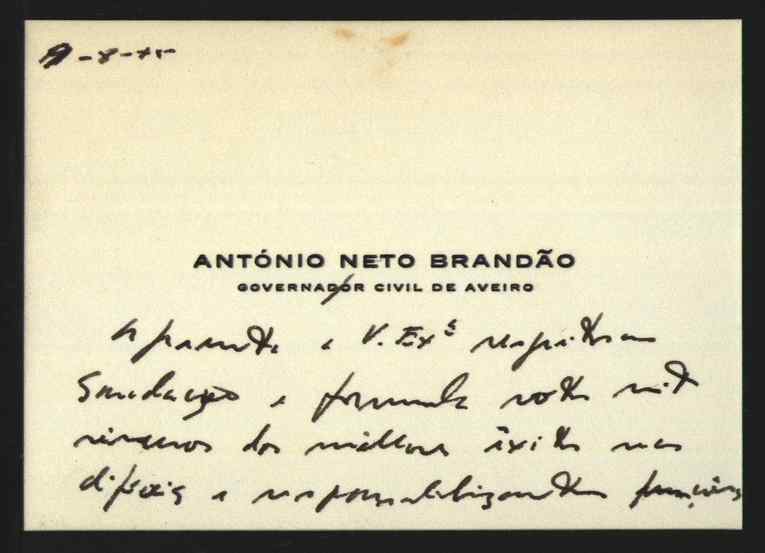 9-8-75
ANTÓNIO NETO BRANDÃO
GOVERNADOR CIVIL DE AVEIRO
apresenta a V. Exª respeitosas
saudações e formula votos muito
sinceros dos melhores êxitos nas
difíceis e responsabilizantes funções